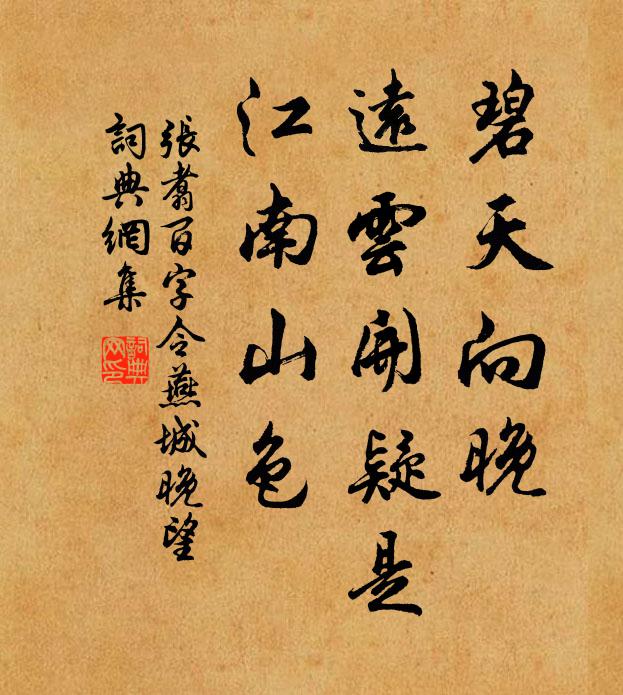 碧天向晚
遠雲開疑是
江南山色
張翥百字令蕪城晚望
詞典網集
詞典
网印